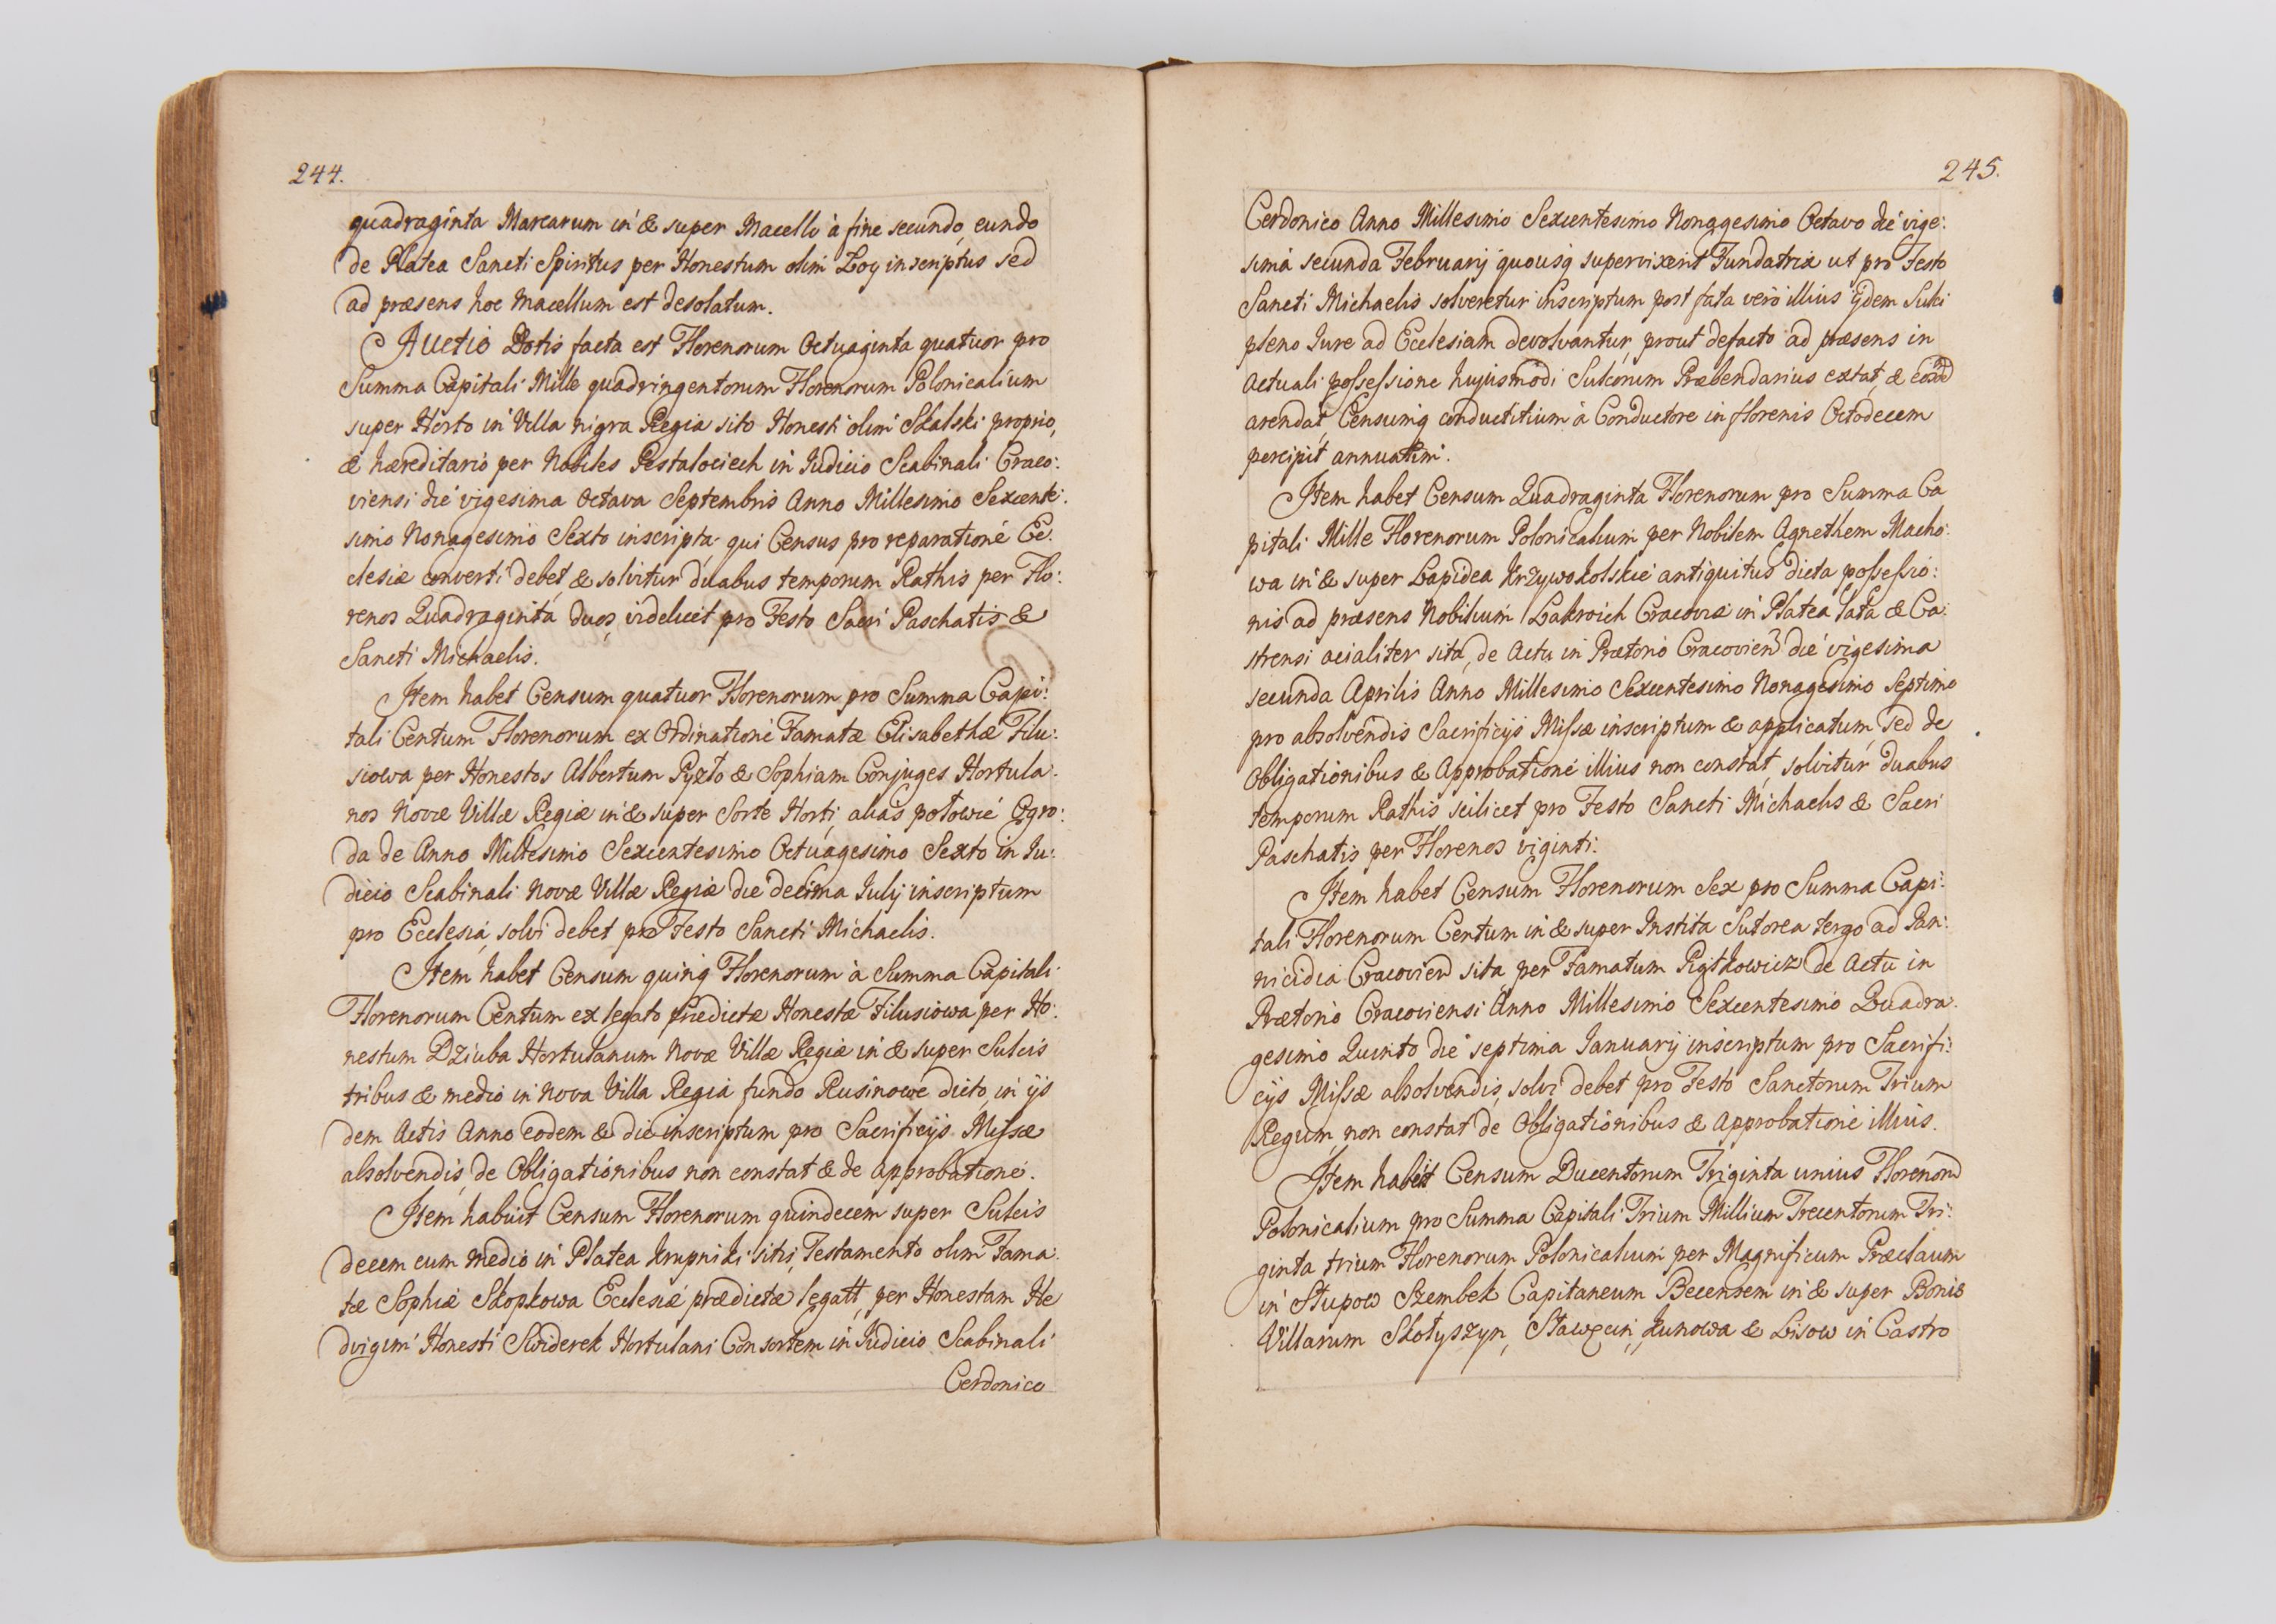 244.
quadraginta Marcarum in & super Macello à fine secundo, eundo
de Platea Sancti Spiritus per Honestum olim Loy inscriptus sed
ad præsens hoc Macellum est desolatum.
Auctio Dotis facta est Florenorum Octuaginta quatuor pro
Summa Capitali Mille quadringentorum Florenorum Polonicalium
super Horto in Villa nigra Regia sito Honesti olim Skalski proprio,
& hæreditario per Nobiles Pestalociech in Iudicio Scabinali Craco:
viensi die vigesima Octava Septembris Anno Millesimo Sexcente:
simo Nonagesimo Sexto inscripta qui Census pro reparatione Ec:
clesiæ converti debet, & solvitur duabus temporum Rathis per Flo:
renos Quadraginta duos, videlicet pro Festo Sacri Paschatis &
Sancti Michaelis.
Item habet Censum quatuor Florenorum pro Summa Capi:
tali Centum Florenorum ex Ordinatione Famatæ Elisabethæ Filu:
siowa per Honestos Albertum Pyzło & Sophiam Conjuges Hortula:
nos Novæ Villæ Regiæ in & super Sorte Horti, alias połowie Ogro:
da de Anno Millesimo Sexcentesimo Octuagesimo Sexto in Iu:
dicio Scabinali Novæ Villæ Regiæ die decima Iulij inscriptum
pro Ecclesia, solvi debet pro Festo Sancti Michaelis.
Item habet Censum quinq Florenorum à Summa Capitali
Florenorum Centum ex legato prædictæ Honestæ Filusiowa per Ho:
nestum Dziuba Hortulanum Novæ Villæ Regiæ in & super Sulcis
tribus & medio in Nova Villa Regia fundo Rusinowe dicto, in ijs
dem Actis Anno eodem & die inscriptum pro Sacrificijs Missæ
absolvendis, de Obligationibus non constat & de approbatione.
Item habuit Censum Florenorum quindecem super Sulcis
decem cum medio in Platea Krupniki sitis, Testamento olim Fama:
tæ Sophiæ Skopkowa Ecclesiæ prædictæ legatt, per Honestam He
dvigim Honesti Swiderek Hortulani Consortem in Iudicio Scabinali
Cerdonico
245.
Cerdonico Anno Millesimo Sexcentesimo Nonagesimo Octavo die vige:
sima secunda Februarij quousq supervixerit Fundatrix ut pro Festo
Sancti Michaelis solveretur inscriptum post fata verò illius ijdem Sulci
pleno Iure ad Ecclesiam devolvantur, prout defacto ad præsens in
Actuali possessione hujusmodi Sulcorum Præbendarius extat, &
arendat, Censumq conductitium à Conductore in florenis Octodecem
percipit annuatim.
Item habet Censum Quadraginta Florenorum pro Summa Ca
pitali Mille Florenorum Polonicalium per Nobilem Agnethem Macho:
wa in & super Lapidea Krzywokolskie antiquitus dicta possessio:
nis ad præsens Nobilium Lakroich Cracoviæ in Platea lata & Ca:
strensi acialiter sita, de Actu in Prætorio Cracovien die vigesima
secunda Aprilis Anno Millesimo Sexcentesimo Nonagesimo Septimo
pro absolvendis Sacrificijs Missæ inscriptum & applicatum, sed de
Obligationibus & Approbatione illius non constat, solvitur duabus
temporum Rathis scilicet pro Festo Sancti Michaelis & Sacri
Paschatis per Florenos viginti:
Item habet Censum Florenorum Sex pro Summa Capi:
tali Florenorum Centum in & super Instita Sutorea tergo ad Pan:
nicidia Cracovien sita, per Famatum Piątkowicz de Actu in
Prætorio Cracoviensi Anno Millesimo Sexcentesimo Quadra:
gesimo Quinto die septima Ianuarij inscriptum pro Sacrifi:
cijs Missæ absolvendis, solvi debet pro Festo Sanctorum Trium
Regum, non constat de Obligationibus & Approbatione illius.
Item habet Censum Ducentorum Triginta unius Florenorū
Polonicalium pro Summa Capitali Trium Millium Trecentorum Tri:
ginta trium Florenorum Polonicalium per Magnificum Præclaum
in Słupow Szembek Capitaneum Becensem in & super Bonis
Villarum Skołyszyn, Sławęcin, Kunowa & Lisow in Castro